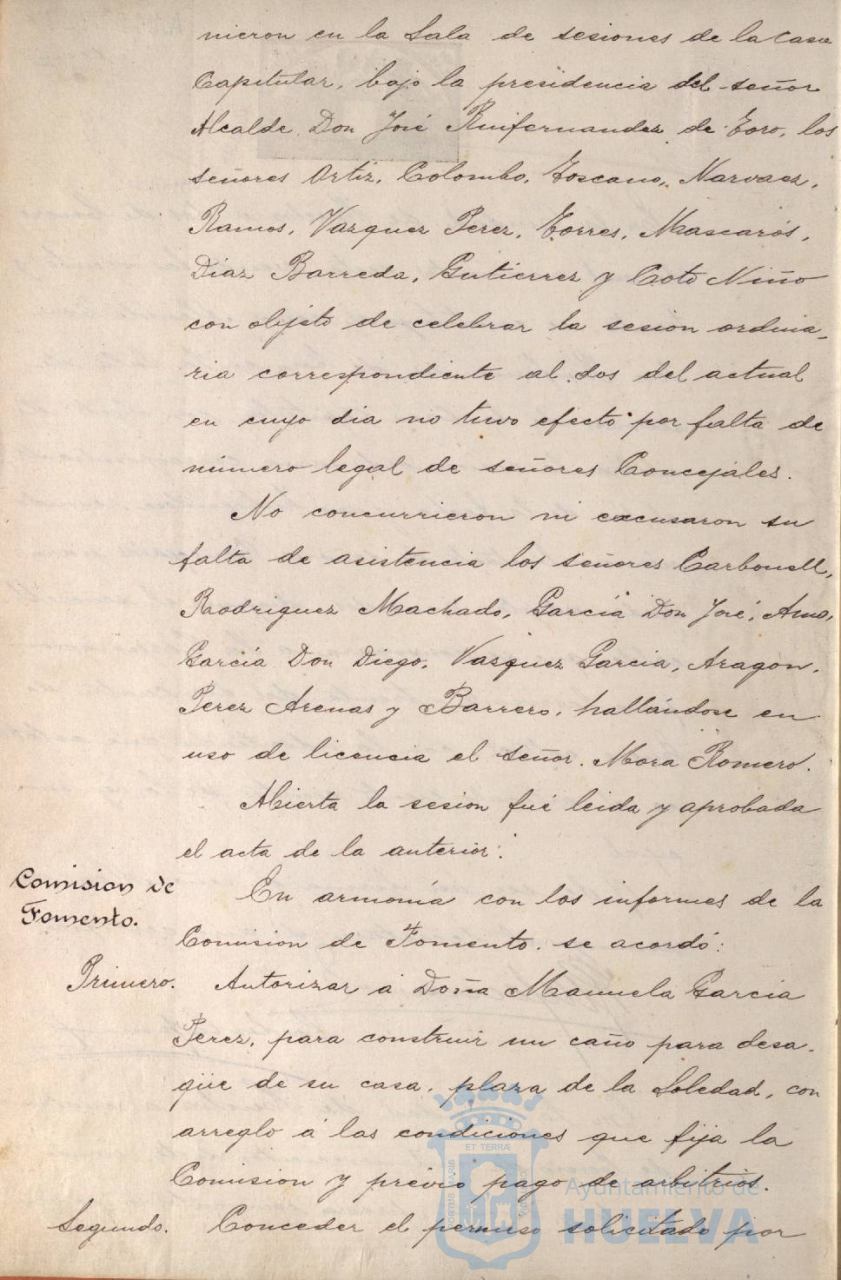 nieron en la Sala de sesiones de la Casa
Capitular, bajo la presidencia del señor
Alcalde, Don José Ruifernandez de Toro, los
señores Ortiz, Colombo, Toscano, Narvaez,
Ramos, Vazquez Perez, Torres, Mascarós,
Diaz Barreda, Gutierrez y Coto Niño
con objeto de celebrar la sesion ordina-
ria correspondiente al dos del actual
en cuyo dia no tuvo efecto por falta de
número legal de señores Concejales.
No concurrieron ni excusaron su
falta de asistencia los señores Carbonell,
Rodriguez Machado, García Don José, Amo,
García Don Diego, Vasquez Garcia, Aragon,
Perez Arenas y Barrero, hallándose en
uso de licencia el señor Mora Romero.
Abierta la sesion fué leida y aprobada
el acta de la anterior.
Comision de
Fomento.
En armonía con los informes de la
Comision de Fomento, se acordó:
Primero. Autorizar á Doña Manuela Garcia
Perez, para construir un caño para desa-
güe de su casa, plaza de la Soledad, con
arreglo á las condiciones que fija la
Comision y prévio pago de arbitrios.
Segundo. Conceder el permiso solicitado por
ET TERRÆ
Ayuntamiento de
HUELVA